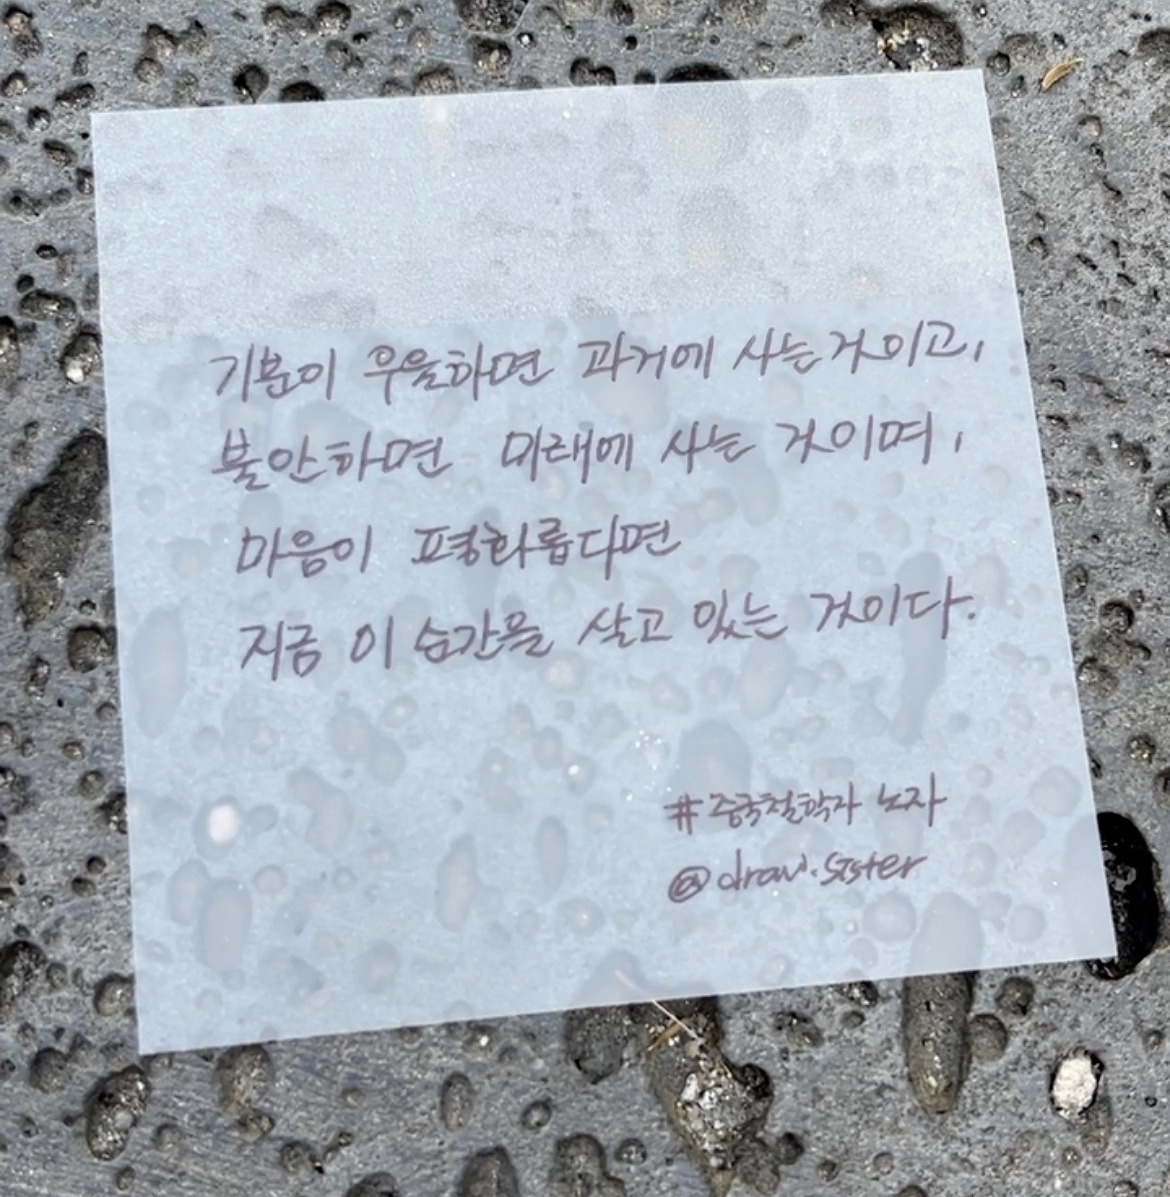 기분이 우울하면 과거에 사는 것이고,
불안하면 미래에 사는 것이며,
마음이 평화롭다면
지금 이 순간을 살고 있는 것이다.
#중국철학자 노자
@draw.sister